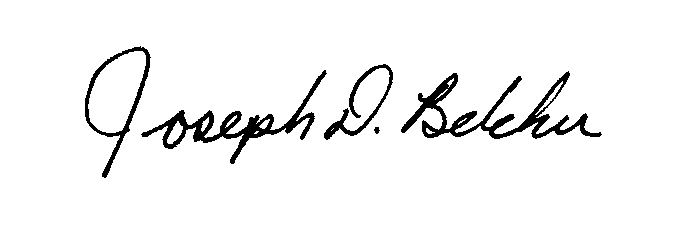 Joseph D. Belcher